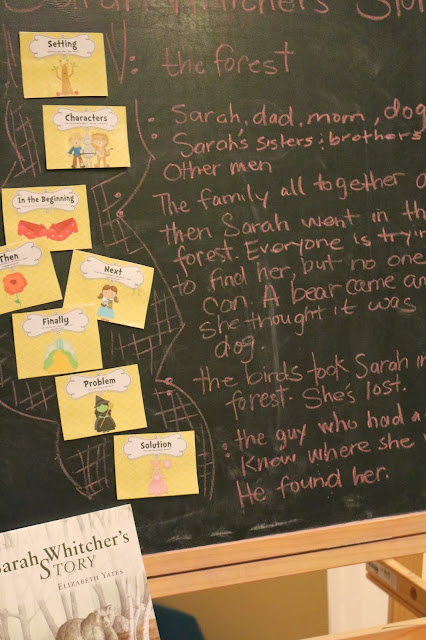 Sarah Whitcher's Story
Setting
: the forest
Characters
: Sarah, dad, mom, dog
Sarah's sisters; brothers
Other men
In the Beginning
: The family all together
then Sarah went in
forest. Everyone is
to find her, but no one
can. A bear came
she thought it was
dog.
Then
Next
Finally
Problem
: the birds took Sarah
forest. She's lost.
Solution
: the guy who had a
Know where she
He found her.
Sarah Whitcher's
Story
Elizabeth Yates